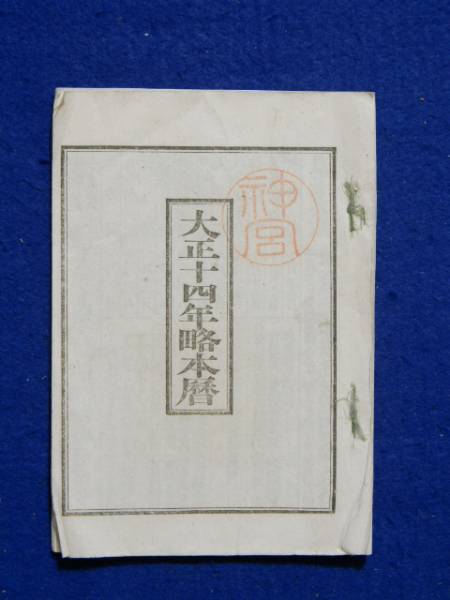 大正十四年略本暦
神宮